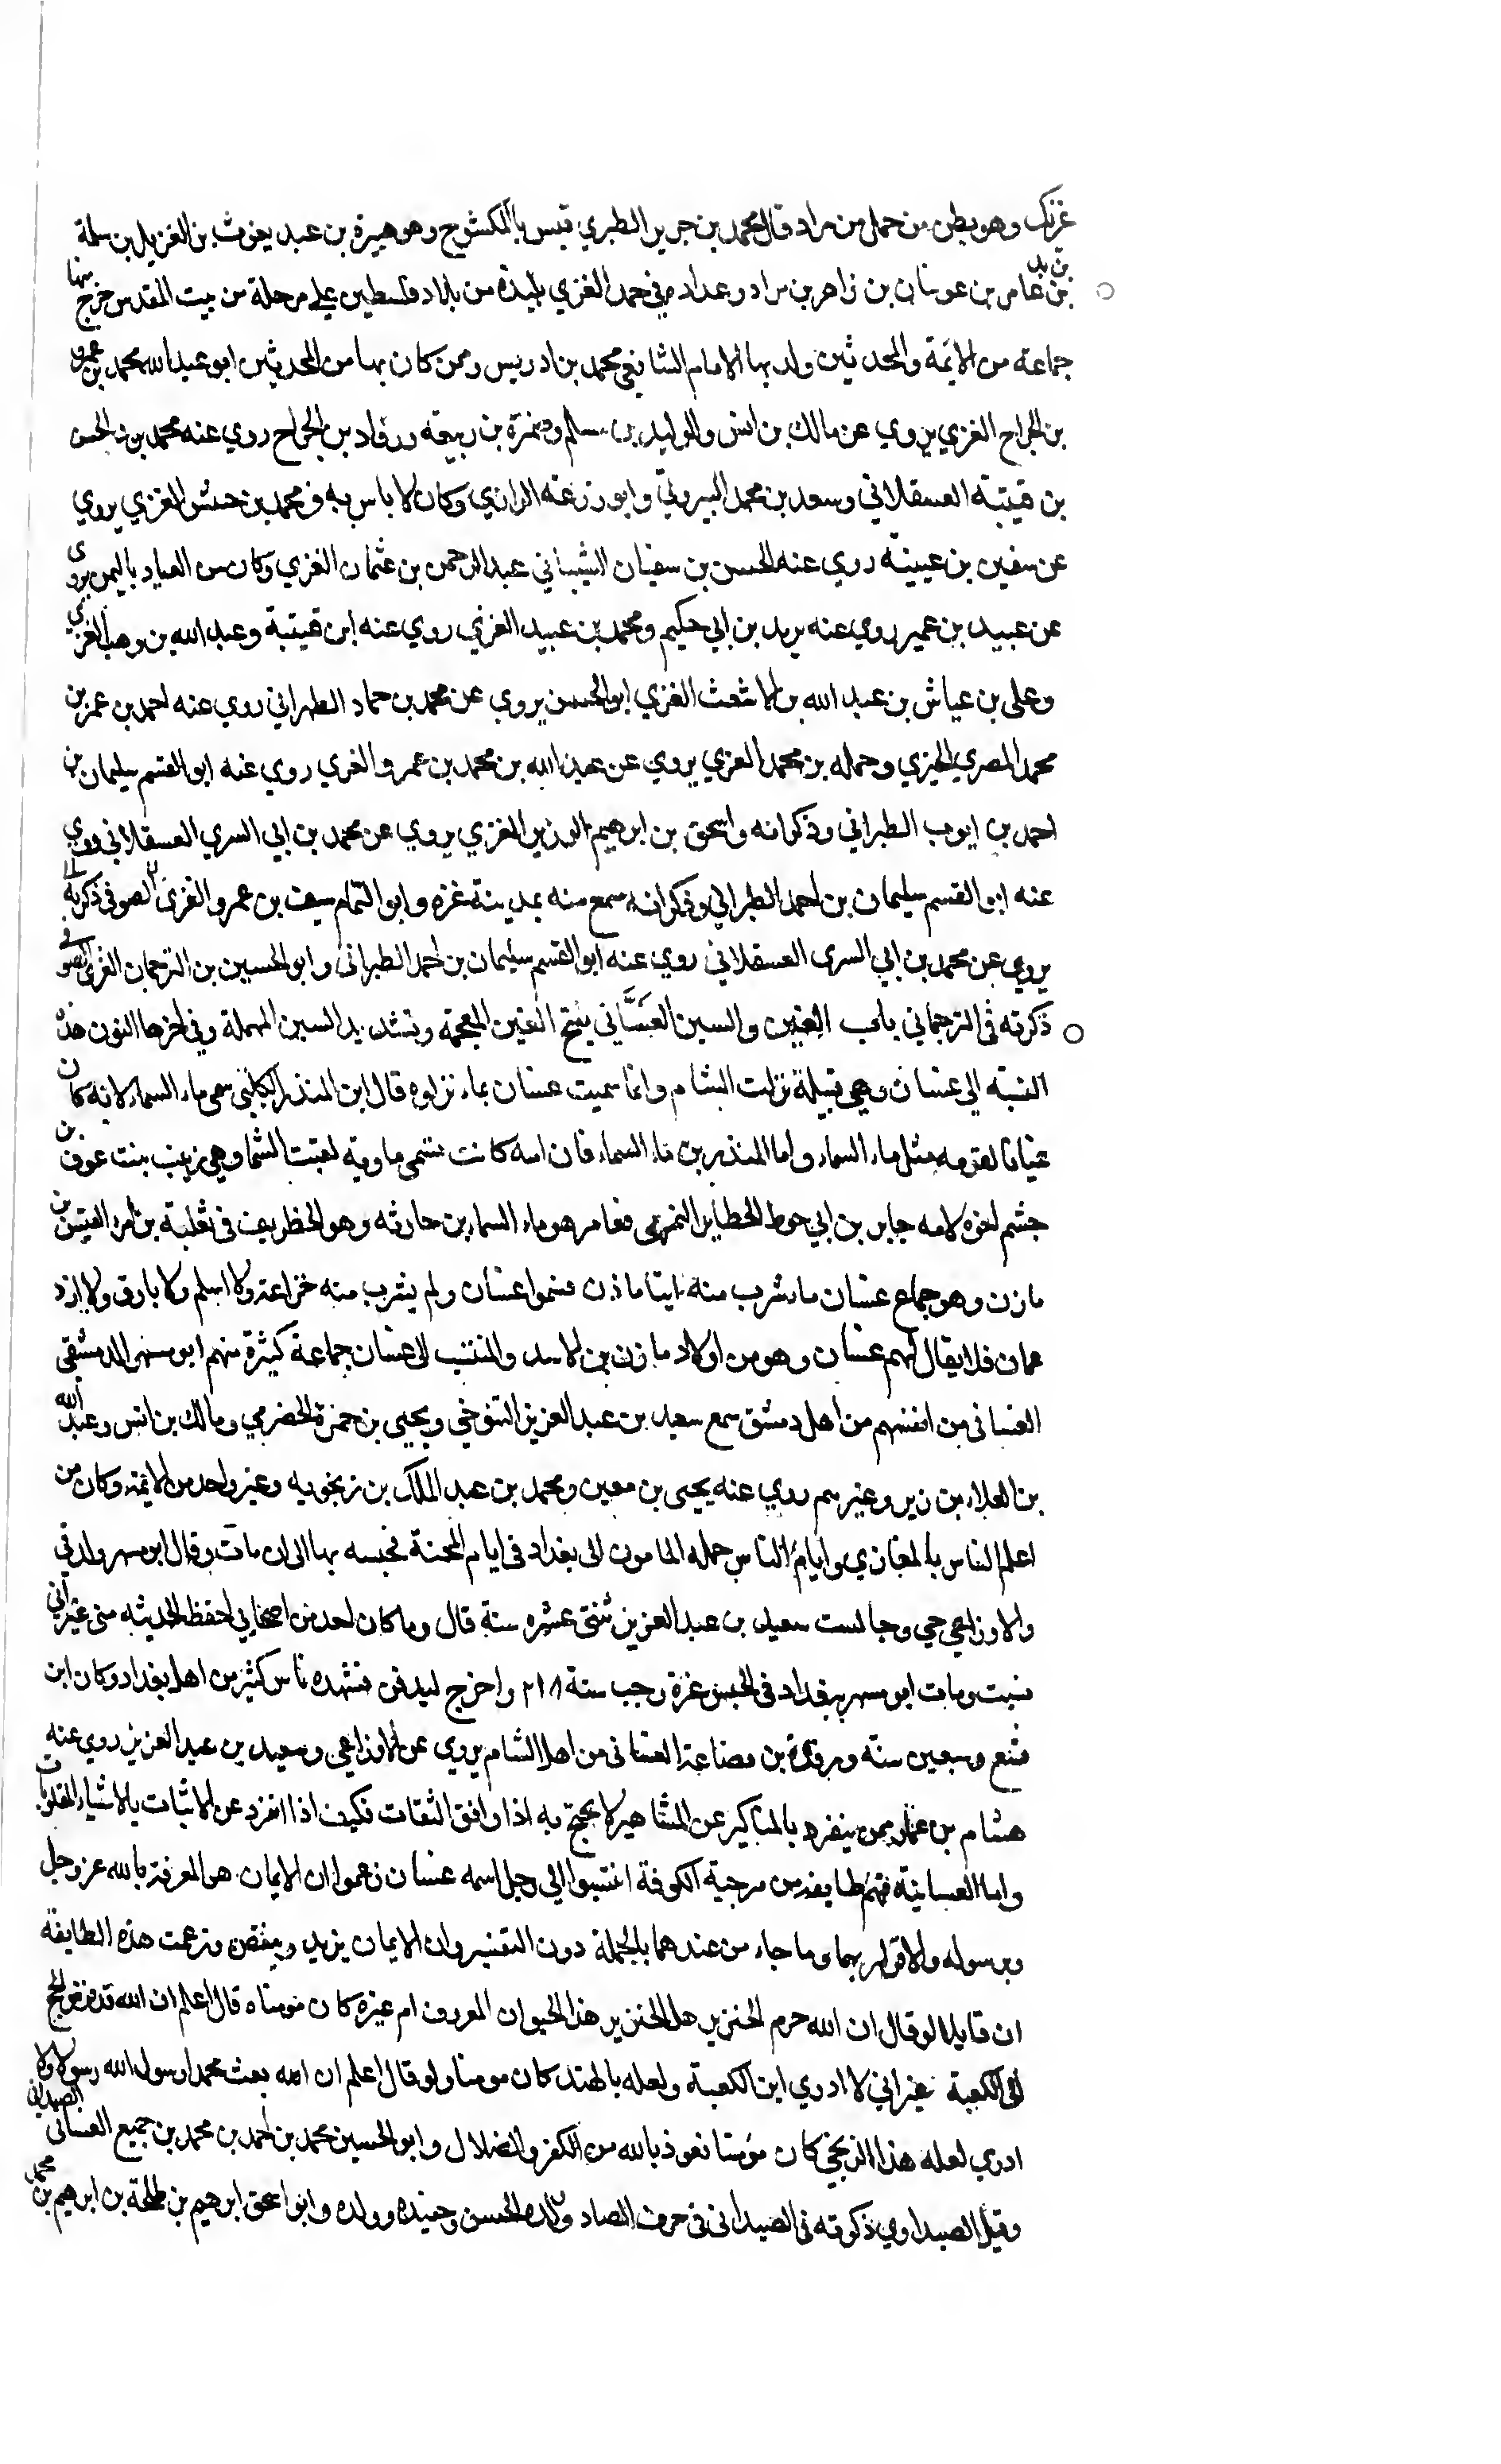 غزيل وهو بطن من حمل من مراد قال محمد بن جرير الطبري قيس بالمكشوح وهو هبيرة بن عبد يغوث بن الغزيل بن سلمة
بن بدا بن عامر بن عوبثان بن زاهر بن مراد وعداد في حمد الغزي بليدة من بلاد فلسطين على مرحلة من بيت المقدس خرج منها
جماعة من الايمة والمحدثين ولد بها الامام الشافعي محمد بن ادريس وممن كان بها من المحدثين ابو عبد الله محمد بن عمرو
بن الجراح الغزي يروي عن مالك بن انس والوليد بن مسلم وضمرة بن ربيعه ورواد بن الجراح روي عنه محمد بن الحسن
بن قتيبة العسقلاني وسعد بن محمد البيروتي وابو زرعة الرازي وكان لا باس به ومحمد بن حسن الغزي يروي
عن سفين بن عيينة روي عنه الحسن بن سفيان الشيباني عبد الرحمن بن عثمان الغزي وكان من العباد باليمن يروى
عن عبيد بن عمير روي عنه يزيد بن ابي حكيم ومحمد بن عبيد الغزي روي عنه ابن قتيبة وعبد الله بن وهب الغزي
وعلى بن عياش بن عبد الله بن الاشعث الغزي ابو الحسن يروي عن محمد بن حماد الطهراني روي عنه احمد بن عمر بن
محمد المصري الجيزي وحمله بن محمد الغزي يروي عن عبد الله بن محمد بن عمرو الغزي روي عنه ابو القسم سليمان بن
احمد بن ايوب الطبراني وذكر انه واسحق بن ابرهيم الوزير الغزي يروي عن محمد بن ابي السري العسقلاني روي
عنه ابو القسم سليمان بن احمد الطبراني وذكر انه سمع منه بمدينة غزه وابو التمام سيف بن عمرو الغزي الصوفي ذكر انه
يروي عن محمد بن ابي السرى العسقلاني روي عنه ابو القسم سليمان بن احمد الطبراني وابو الحسين بن الترجمان الغزي الصوفي
ذكرته في الترجماني باب الغين والسين الغسَّاني بفتح الغين المعجمة وتشديد السين المهملة وفي اخرها النون هذه
النسبة الى غسان وهي قبيلة نزلت الشام وانما سميت غسان بماء نزلوه قال ابن المنذر الكلبي سمى ماء السماء لانه كان
غياثا لقومه مثل ماء السماء واما المنذر بن ماء السماء فان امه كانت تسمى ماوية لقبت السما وهي زينب بنت عوف بن
جشم اخوه لامه جابر بن ابي حوط الحظاير النمري فعامر هو ماء السماء بن حارثه وهو الغطريف في ثعلبة بن امرء القيس بن
مازن وهو جماع غسان ما شرب منه ابنا مازن فسموا غسان ولم يشرب منه خزاعة ولا اسلم ولا بارق ولا ازد
عمان فلا يقال لهم غسان وهو من اولاد مازن بن الاسد والمنتسب الى غسان جماعة كثيرة منهم ابو مسهر الدمشقي
الغساني من انفسهم من اهل دمشق سمع سعيد بن عبد العزيز التنوخي ويحيى بن حمزة الحضرمي ومالك بن انس وعبد الله
بن العلاء بن زبر وغيرهم روي عنه يحيى بن معين ومحمد بن عبد الملك بن زنجويه وغير واحد من الائمة وكان من
اعلم الناس بالمغازي وايام الناس حمله المامون الى بغداد في ايام المحنة فحبسه بها الى ان مات وقال ابو مسهر ولد لي
والاوزاعي حي وجالست سعيد بن عبد العزيز ثنتي عشره سنة قال وما كان احد من اصحابي احفظ لحديثه مني غير اني
نسيت ومات ابو مسهر ببغداد في الحبس غرة رجب سنة ٢١٨ واخرج ليدفن فشهده ناس كثير من اهل بغداد وكان ابن
تسع وسبعين سنة ومرزوق بن قضاعة الغساني من اهل الشام يروي عن الاوزاعي وسعيد بن عبد العزيز روي عنه
هشام بن عمار ممن ينفرد بالمناكير عن المشاهير لا يحتج به اذا وافق الثقات فكيف اذا انفرد عن الاثبات بالاشياء المقلوبات
واما الغسانية فهم طايفة من مرجية الكوفة انتسبوا الى رجل اسمه غسان زعموا ان الايمان هو المعرفة بالله عز وجل
وبرسوله والاقرار بهما وما جاء من عندهما بالجملة دون التفسير وان الايمان يزيد وينقص وزعمت هذه الطايفة
ان قايلا لو قال ان الله حرم الخنزير هل الخنزير هذا الحيوان المعروف ام غيره كان مومنا ه قال اعلم ان الله قد فرض الحج
الى الكعبة غير اني لا ادري اين الكعبة ولعله بالهند كان مومنا ولو قال اعلم ان الله بعث محمدا رسول الله رسولا ولا
ادري لعله هذا الزنجي كان مؤمنا نعوذ بالله من الكفر والضلال وابو الحسين محمد بن احمد بن محمد بن جميع الغساني الصيداني
وقيل الصيداوي ذكرته في الصيداني في حرف الصاد وولده الحسن وحفيده وولده وابو اسحق ابرهيم بن طلحة بن ابرهيم بن محمد